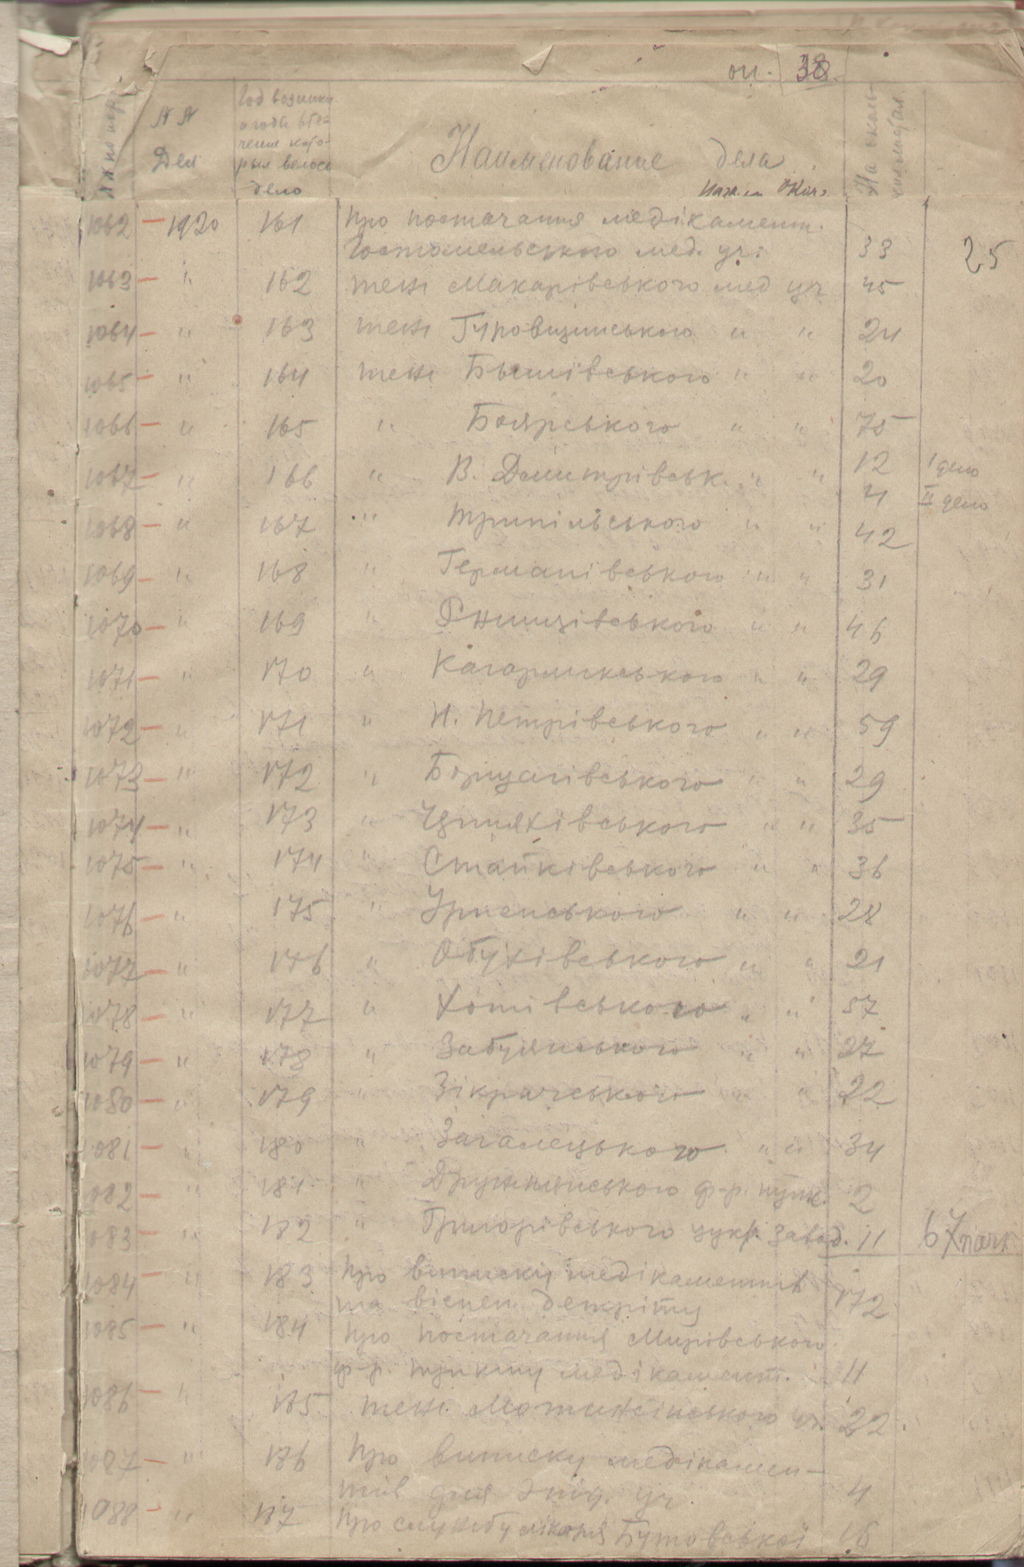 оп. 38.
№№ Дел
Наименование дела
1062 – 1920 161 Про постачання медікамент.
Гостомельського мед. уч. 33 25
1063 – " 162 теж Макарівського мед уч 45
1064 – " 163 теж Гуровщинського " " 24
1065 – " 164 теж Бышівського " " 20
1066 – " 165 " Боярського " " 75
1067 – " 166 " В. Дмитрівськ. " " 12 I дело
4 II дело
1068 – " 167 " Трипільського " " 42
1069 – " 168 " Германівського " " 31
1070 – " 169 " Ржищівського " " 46
1071 – " 170 " Кагарликського " " 29
1072 – " 171 " Н. Петрівського " " 59
1073 – " 172 " Борщагівського " " 29
1074 – " 173 " Черняхівського " " 35
1075 – " 174 " Стайківського " " 36
1076 – " 175 " Ірпенського " " 28
1077 – " 176 " Обухівського " " 21
1078 – " 177 " Хотівського " " 57
1079 – " 178 " Забуянського " " 27
1080 – " 179 " Зікрачського " " 22
1081 – " 180 " Загалецького " " 34
1082 – " 181 " Дружнянського ф-р. пунк. 2
1083 – " 182 " Григорівського цукр. завод. 11
1084 – " 183 Про виписку медікаментів
та віспен. детріту 172
1085 – " 184 Про постачання Мирівського
ф-р. пункту медікамент. 11
1086 – " 185 теж Мотижинського уч. 22
1087 – " 186 Про виписку медікамен-
тів для Эпід. уч. 4
1088 – " 187 Про службу лікаря Бутовської 16